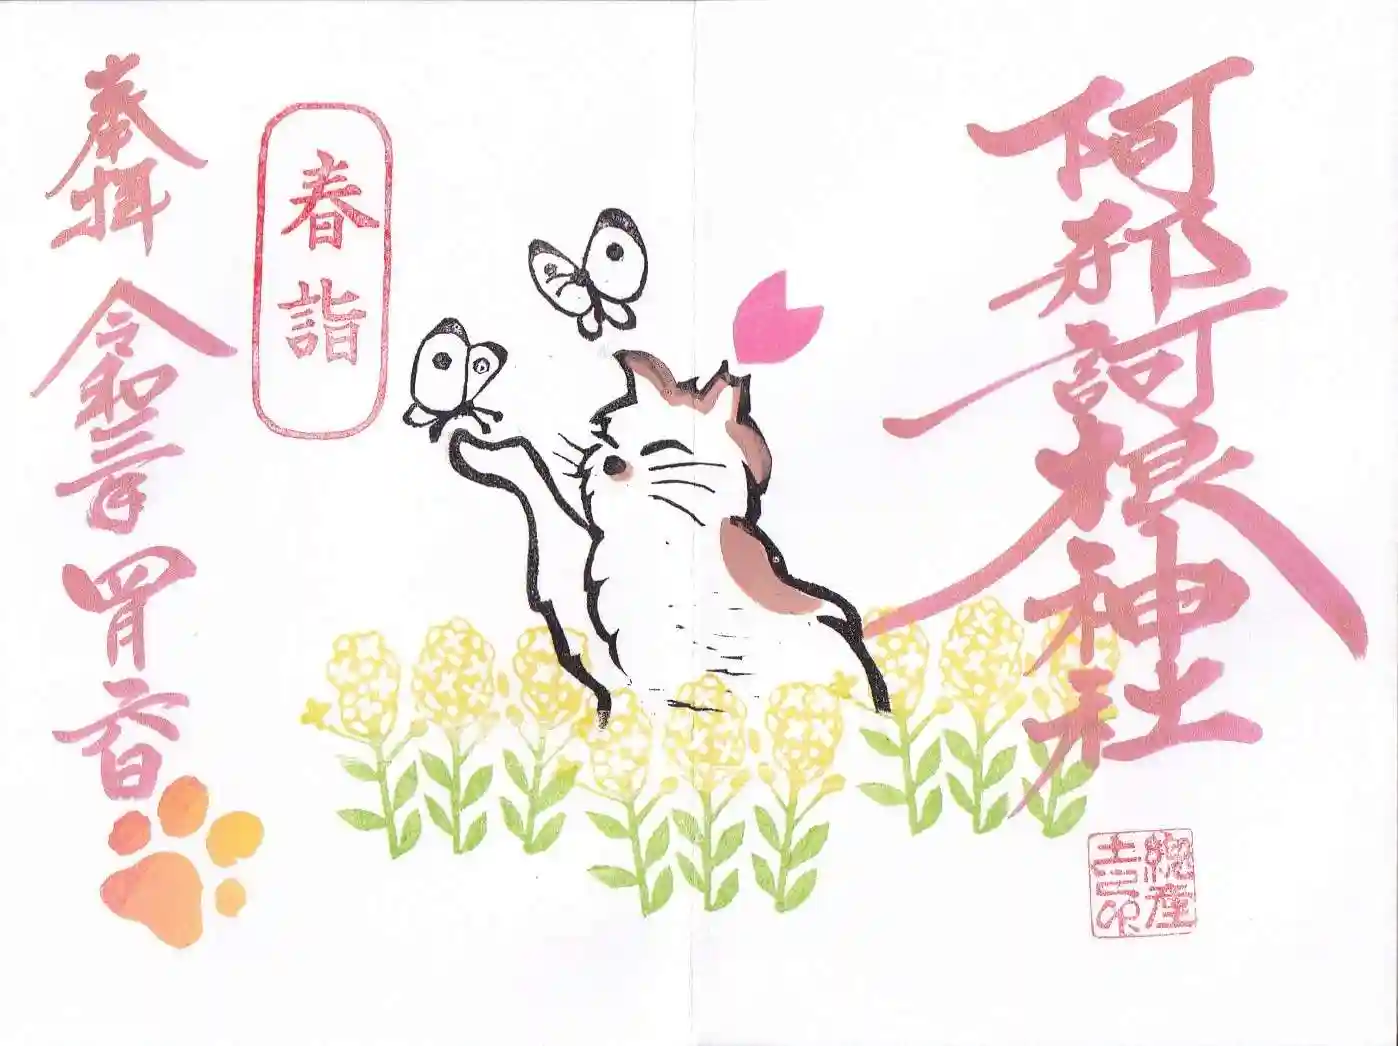 阿邪訶根神社
春詣
奉拝
令和三年四月六日